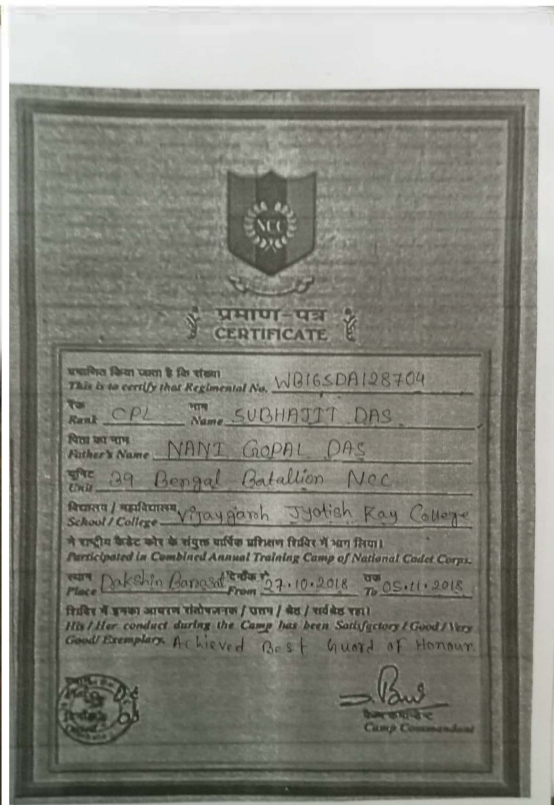 NCC
प्रमाण-पत्र
CERTIFICATE
प्रमाणित किया जाता है कि संख्या
This is to certify that Regimental No. WB16SDA128704
रैंक नाम
Rank CPL Name SUBHAJIT DAS
पिता का नाम
Father's Name NANI GOPAL DAS
यूनिट
Unit 39 Bengal Batallion Ncc
विद्यालय / महाविद्यालय
School / College Vijaygarh Jyotish Ray College
ने राष्ट्रीय कैडेट कोर के संयुक्त वार्षिक प्रशिक्षण शिविर में भाग लिया।
Participated in Combined Annual Training Camp of National Cadet Corps.
स्थान दिनाँक से तक
Place Dakshin Barasat From 27.10.2018 To 05.11.2018
शिविर में इनका आचरण संतोषजनक / उत्तम / श्रेष्ठ / सर्वश्रेष्ठ रहा।
His / Her conduct during the Camp has been Satisfactory / Good / Very
Good / Exemplary. Achieved Best Guard of Honour
कैम्प कमान्डेन्ट
Camp Commandant